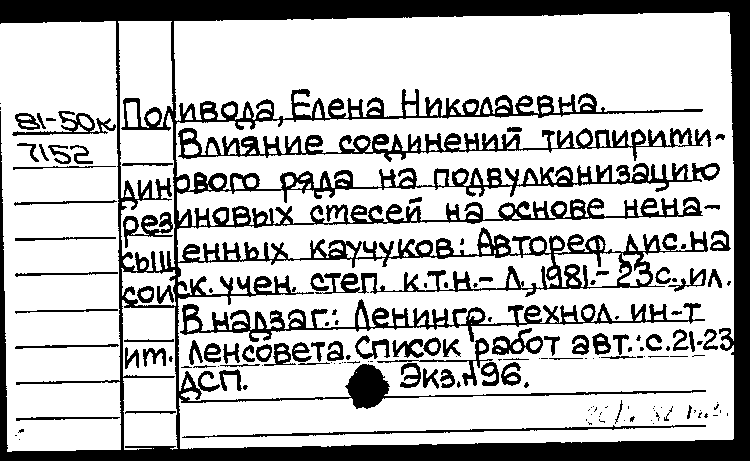 81-50к
7152
Поливода, Елена Николаевна.
Влияние соединений тиопирити-
динового ряда на подвулканизацию
резиновых стесей на основе нена-
сыщенных каучуков: Автореф. дис. на
соиск. учен. степ. к.т.н. - Л., 1981. - 23с., ил.
В надзаг.: Ленингр. технол. ин-т
им. Ленсовета. Список работ авт.: с. 21-23
ДСП. Экз.№96.